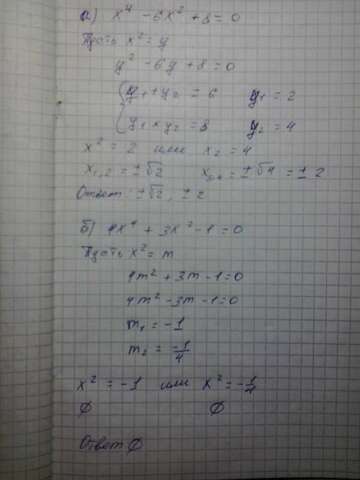 а) x⁴ - 6x² + 8 = 0
Пусть x² = y
y² - 6y + 8 = 0
{ y₁ + y₂ = 6 y₁ = 2
{ y₁ × y₂ = 8 y₂ = 4
x² = 2 или x₂ = 4
x₁,₂ = ±√2 x₃,₄ = ±√4 = ±2
Ответ: ±√2, ±2
б) 4x⁴ + 3x² - 1 = 0
Пусть x² = m
4m² + 3m - 1 = 0
4m² - 3m - 1 = 0
m₁ = -1
m₂ = -1/4
x² = -1 или x² = -1/4
∅ ∅
Ответ ∅